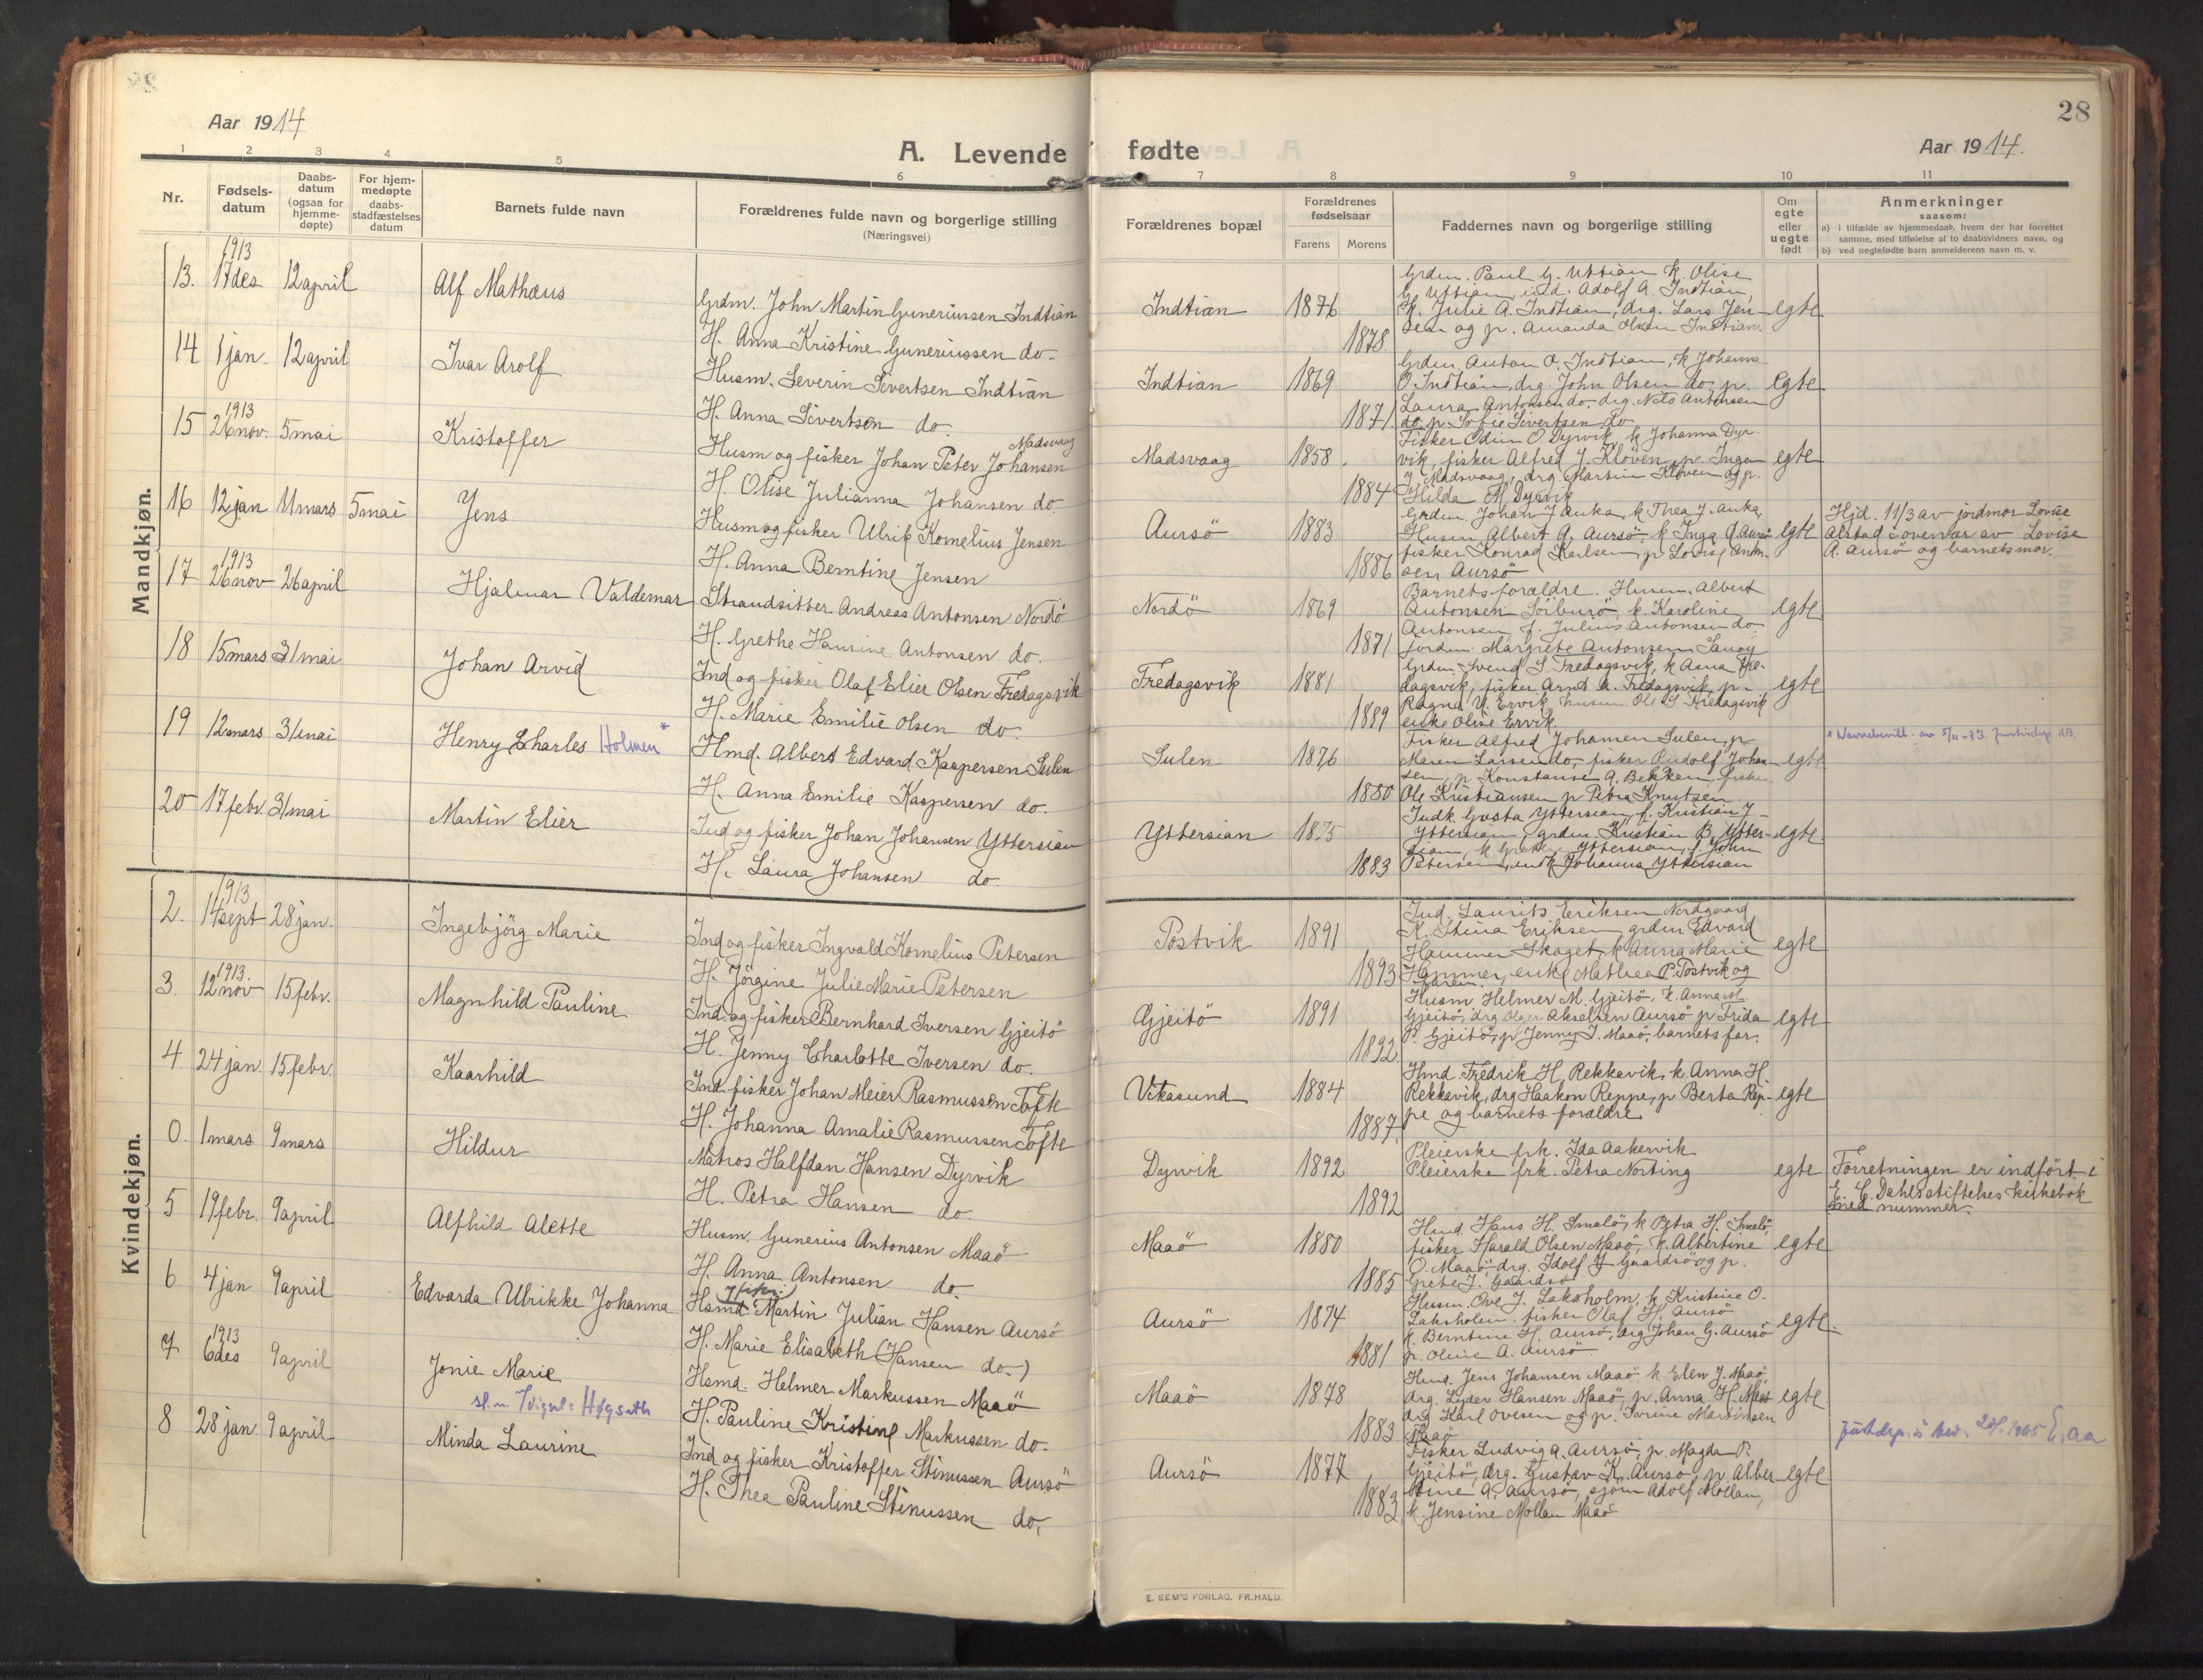 28
Aar 1914
A. Levende fødte
Aar 1914.
1 2 3 4 5 6 7 8 9 10 11
Nr.
Fødsels-
datum
Daabs-
datum
(ogsaa for
hjemme-
døpte)
For hjem-
medøpte
daabs-
stadfæstelses
datum
Barnets fulde navn
Forældrenes fulde navn og borgerlige stilling
(Næringsvei)
Forældrenes bopæl
Forældrenes
fødselsaar
Farens Morens
Faddernes navn og borgerlige stilling
Om
egte
eller
uegte
født
Anmerkninger
saasom:
a) i tilfælde av hjemmedaab, hvem der har forrettet
samme, med tilføielse af to daabsvidners navn, og
b) ved uegtefødte barn anmelderens navn m. v.
Mandkjøn.
13. 1913 17 des 12 april Alf Mathæus
Grdm. John Martin Guneriussen Indtian
H. Anna Kristine Guneriussen do.
Indtian 1876 1878 egte
Grdm. Paul G. Uttian k. Olise
G. Uttian, ind. Adolf A. Indtian,
k. Julie A. Indtian, drg. Lars Jen-
sen og p. Amanda Olsen Indtian.
14 1 jan. 12 april Ivar Arolf
Husm. Severin Sivertsen Indtian
H. Anna Sivertsen do.
Indtian 1869 1871 egte.
Grdm. Anton O. Indtian, k. Johanna
O. Indtian, drg. John Olsen do, p.
Laura Antonsen do. drg. Nels Antonsen
do, p. Sofie Sivertsen do
15 1913 26 nov. 5 mai Kristoffer
Husm og fisker Johan Peter Johansen Madsvaag
H. Olise Julianna Johansen do.
Madsvaag 1858. 1884 egte
Fisker Odin O Dyrvik, k Johanna Dyr-
vik, fisker Alfred J. Kløven, p. Inga
J. Madsvaag, drg. Martin Kløven og p.
Hilda M Dyrvik
16 12 jan 11 mars 5 mai Jens
Husm og fisker Ulrik Kornelius Jensen
H. Anna Berntine Jensen
Aursö 1883 1886 egte
Grdm. Johan J Anka, k Thea J. Anka,
Husm. Albert A. Aursö, k Inga A. Aursö
fisker Konrad Karlsen, p Lovise Anton-
sen Aursö
Hjd. 11/3 av jordmor Lovise
Alstad i overvær av Lovise
A. Aursö og barnets mor.
17 1913 26 nov 26 april Hjalmar Valdemar
Strandsitter Andreas Antonsen Nordö
H. Grethe Haurine Antonsen do.
Nordö 1869 1871 egte
Barnets forældre. Husm. Albert
Antonsen Söiburö, k. Karoline
Antonsen f. Julius Antonsen do
jordm. Margrete Antonsen
18 15 mars 31 mai Johan Arvid
Ind og fisker Olaf Elier Olsen Fredagsvik
H. Marie Emilie Olsen do.
Fredagsvik 1881 1889 egte
Grdm Svend S. Fredagsvik, k Anna Fre-
dagsvik, fisker Arnt A. Fredagsvik, p.
Ragna U. Ervik, husm Ole S Fredagsvik
enke Olise Ervik.
19 12 mars 31 mai Henry Charles Holmen*
Hmd. Albert Edvard Kaspersen Sulen
H. Anna Emilie Kaspersen do.
Sulen 1876 1880 egte
Fisker Alfred Johansen Sulen, p
Maren Larsen do, fisker Rudolf Johan-
sen, p Konstanse A. Bekken, fisker
Ole Kristiansen p Petra Knutsen
* Navnebevill. av 5/11-73.
20 17 febr. 31 mai Martin Elier
Ind og fisker Johan Johansen Yttersian
H. Laura Johansen do.
Yttersian 1875 1883 egte
Indk. Gusta Yttersian, f. Kristian J
Yttersian, grdm Kristian B. Ytter-
sian, k Yttersian, f John
Petersen, enk Johanna Yttersian
Kvindekjøn.
2. 1913 14 sept 28 jan. Ingebjörg Marie
Ind og fisker Ingvald Kornelius Petersen
H. Jörgine Julie Marie Petersen
Postvik 1891 1893 egte
Ind. Laurits Eriksen Nordgaard
K. Stina Eriksen, grdm Edvard
Hammer Skaget, k Anna Marie
Hammer, enke Mathea P. Postvik og
faren
3 1913. 12 nov 15 febr. Magnhild Pauline
Ind. og fisker Bernhard Iversen Gjeitö
H. Jenny Charlotte Iversen do.
Gjeitö 1891 1892 egte
Husm Helmer M. Gjeitö, k. Anna M.
Gjeitö, drg Olger Akselsen Aursö p Frida
P. Gjeitö, p Jenny I. Maaö, barnets far.
4. 24 jan. 15 febr. Kaarhild
Ind. fisker Johan Meier Rasmussen Tofte
H. Johanna Amalie Rasmussen Tofte
Vikasund 1884 1887. egte
Hmd. Fredrik H. Rekkavik, k. Anna H.
Rekkavik, drg Haakon Reppe, p Berta Rep-
pe og barnets forældre
0. 1 mars 9 mars Hildur
Matros Halfdan Hansen Dyrvik
H. Petra Hansen do.
Dyrvik 1892 1892 egte
Pleierske frk. Ida Aakervik
Pleierske frk. Petra Norting
Forretningen er indført i
E. C. Dahls stiftelses kirkebok
med nummer.
5 19 febr. 9 april Alfhild Alette
Husm. Gunerius Antonsen Maaö
H. Anna Antonsen do.
Maaö 1880 1885 egte
Hmd. Hans H. Smalö, k Petra H. Smalö,
fisker Harald Olsen Maaö, k. Albertine
O. Maaö drg. Idolf J Gaardsö og p.
Grete J. Gaardsö
6 4 jan 9 april Edvarda Ulrikke Johanna
Hsmd. Martin Julian Hansen Aursö
H. Marie Elisabeth (Hansen do.)
Aursö 1874 1881 egte.
Husm. Ove J. Laksholm, k Kristine O.
Laksholm fisker Olaf H. Aursö
k. Berntine H. Aursö, drg Johan G. Aursö
p. Oline A. Aursö.
7 1913 6 des 9 april Jonie Marie
Hsmd. Helmer Markussen Maaö
H. Pauline Kristine Markussen do.
Maaö 1878 1883 egte
Hmd. Jens Johansen Maaö, k Elen J. Maaö,
drg. Lyder Hansen Maaö, p. Anna H. Maaö
drg Karl Ovesen og p. Ivrine Martinsen
Maaö
8 28 jan 9 april Minda Laurine
Ind og fisker Kristoffer Stinussen Aursö
H. Thea Pauline Stinussen do.
Aursö 1877 1883 egte
Fisker Ludvig A. Aursö, p. Magda P.
Gjeitö, drg. Gustav K. Aursö, p. Alber
tine A. Aursö, sjöm Adolf Mollan,
k. Jensine Mollan Maaö
E. SEM'S FORLAG, FR.HALD.